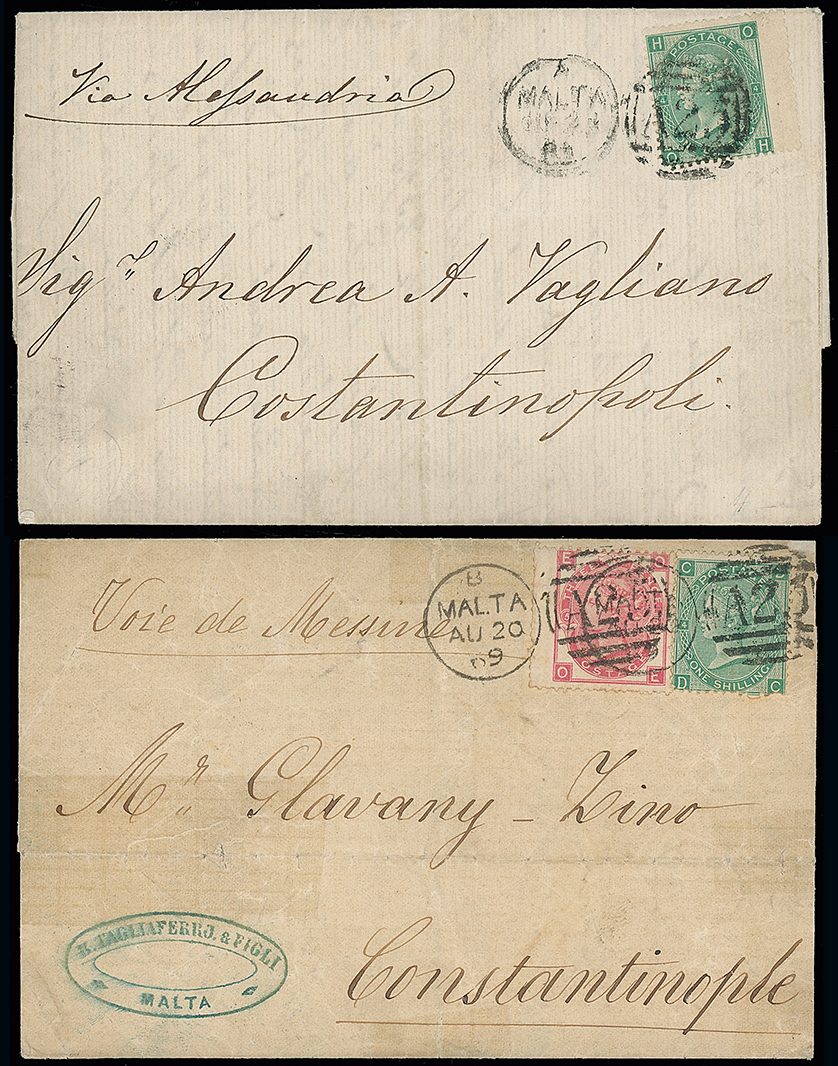 Via Alessandria
A
MALTA
H O
POSTAGE
A25
O H
Sigr Andrea A. Vagliano
Costantinopoli.
Voie de Messine
B
MALTA
AU 20
69
E O
THREE
A25
POSTAGE
O E
C
POSTAGE
A25
ONE SHILLING
D C
Mr Glavany - Zino
Constantinople
TAGLIAFERRO. & FIGLI
MALTA